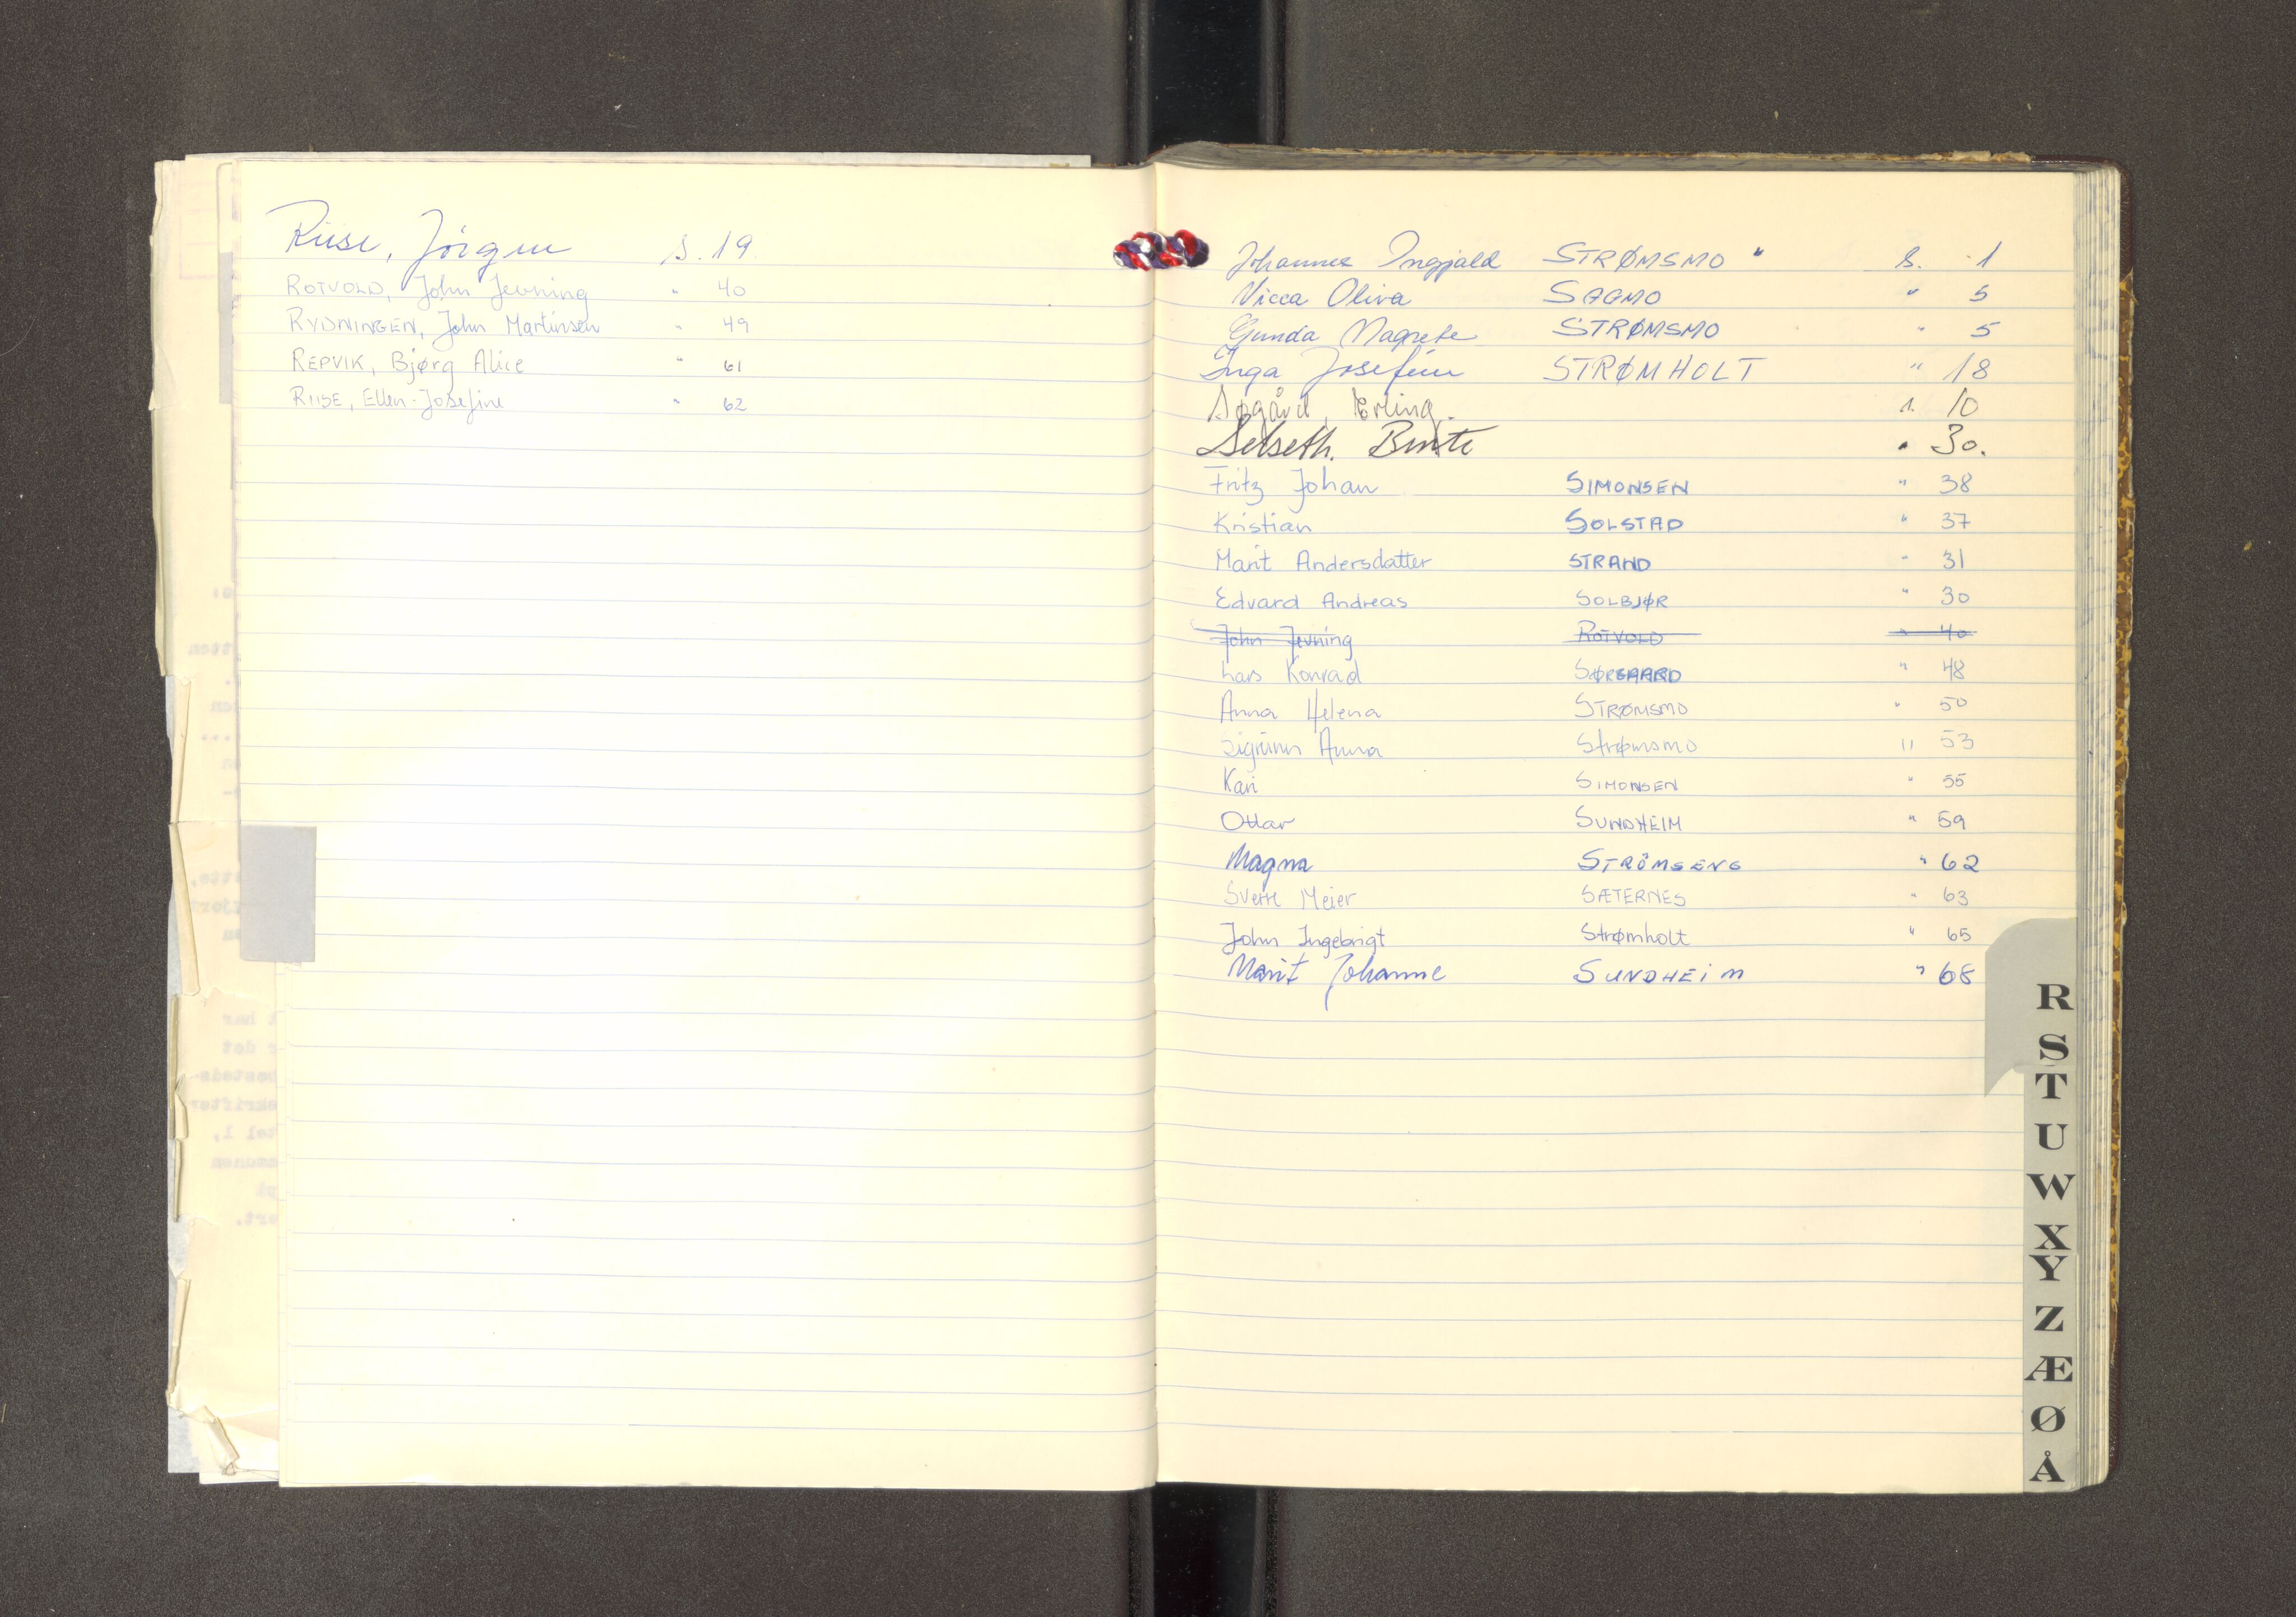 Riise, Jörgen s. 19
ROTVOLD, John Jevning " 40
RYDNINGEN, John Martinsen " 49
REPVIK, Bjørg Alice " 61
RIISE, Ellen-Josefine " 62
Johannes Ingjald STRØMSMO " s. 1
Vicca Oliva SAGMO " 5
Gunda Magrete STRØMSMO " 5
Inga Josefine STRØMHOLT " 18
Søgård, Erling. s. 10
Selseth. Bente " 30.
Fritz Johan SIMONSEN " 38
Kristian SOLSTAD " 37
Marit Andersdatter STRAND " 31
Edvard Andreas SOLBJØR " 30
John Jevning ROTVOLD " 40
Lars Konrad SØRGAARD " 48
Anna Helena STRØMSMO " 50
Sigrunn Anna Strømsmo " 53
Kari SIMONSEN " 55
Ottar SUNDHEIM " 59
Magna STRÖMSENG " 62
Sverre Meier SÆTERNES " 63
John Ingebrigt Strømholt " 65
Marit Johanne SUNDHEIM " 68
R
S
T
U
W
X
Y
Z
Æ
Ø
Å